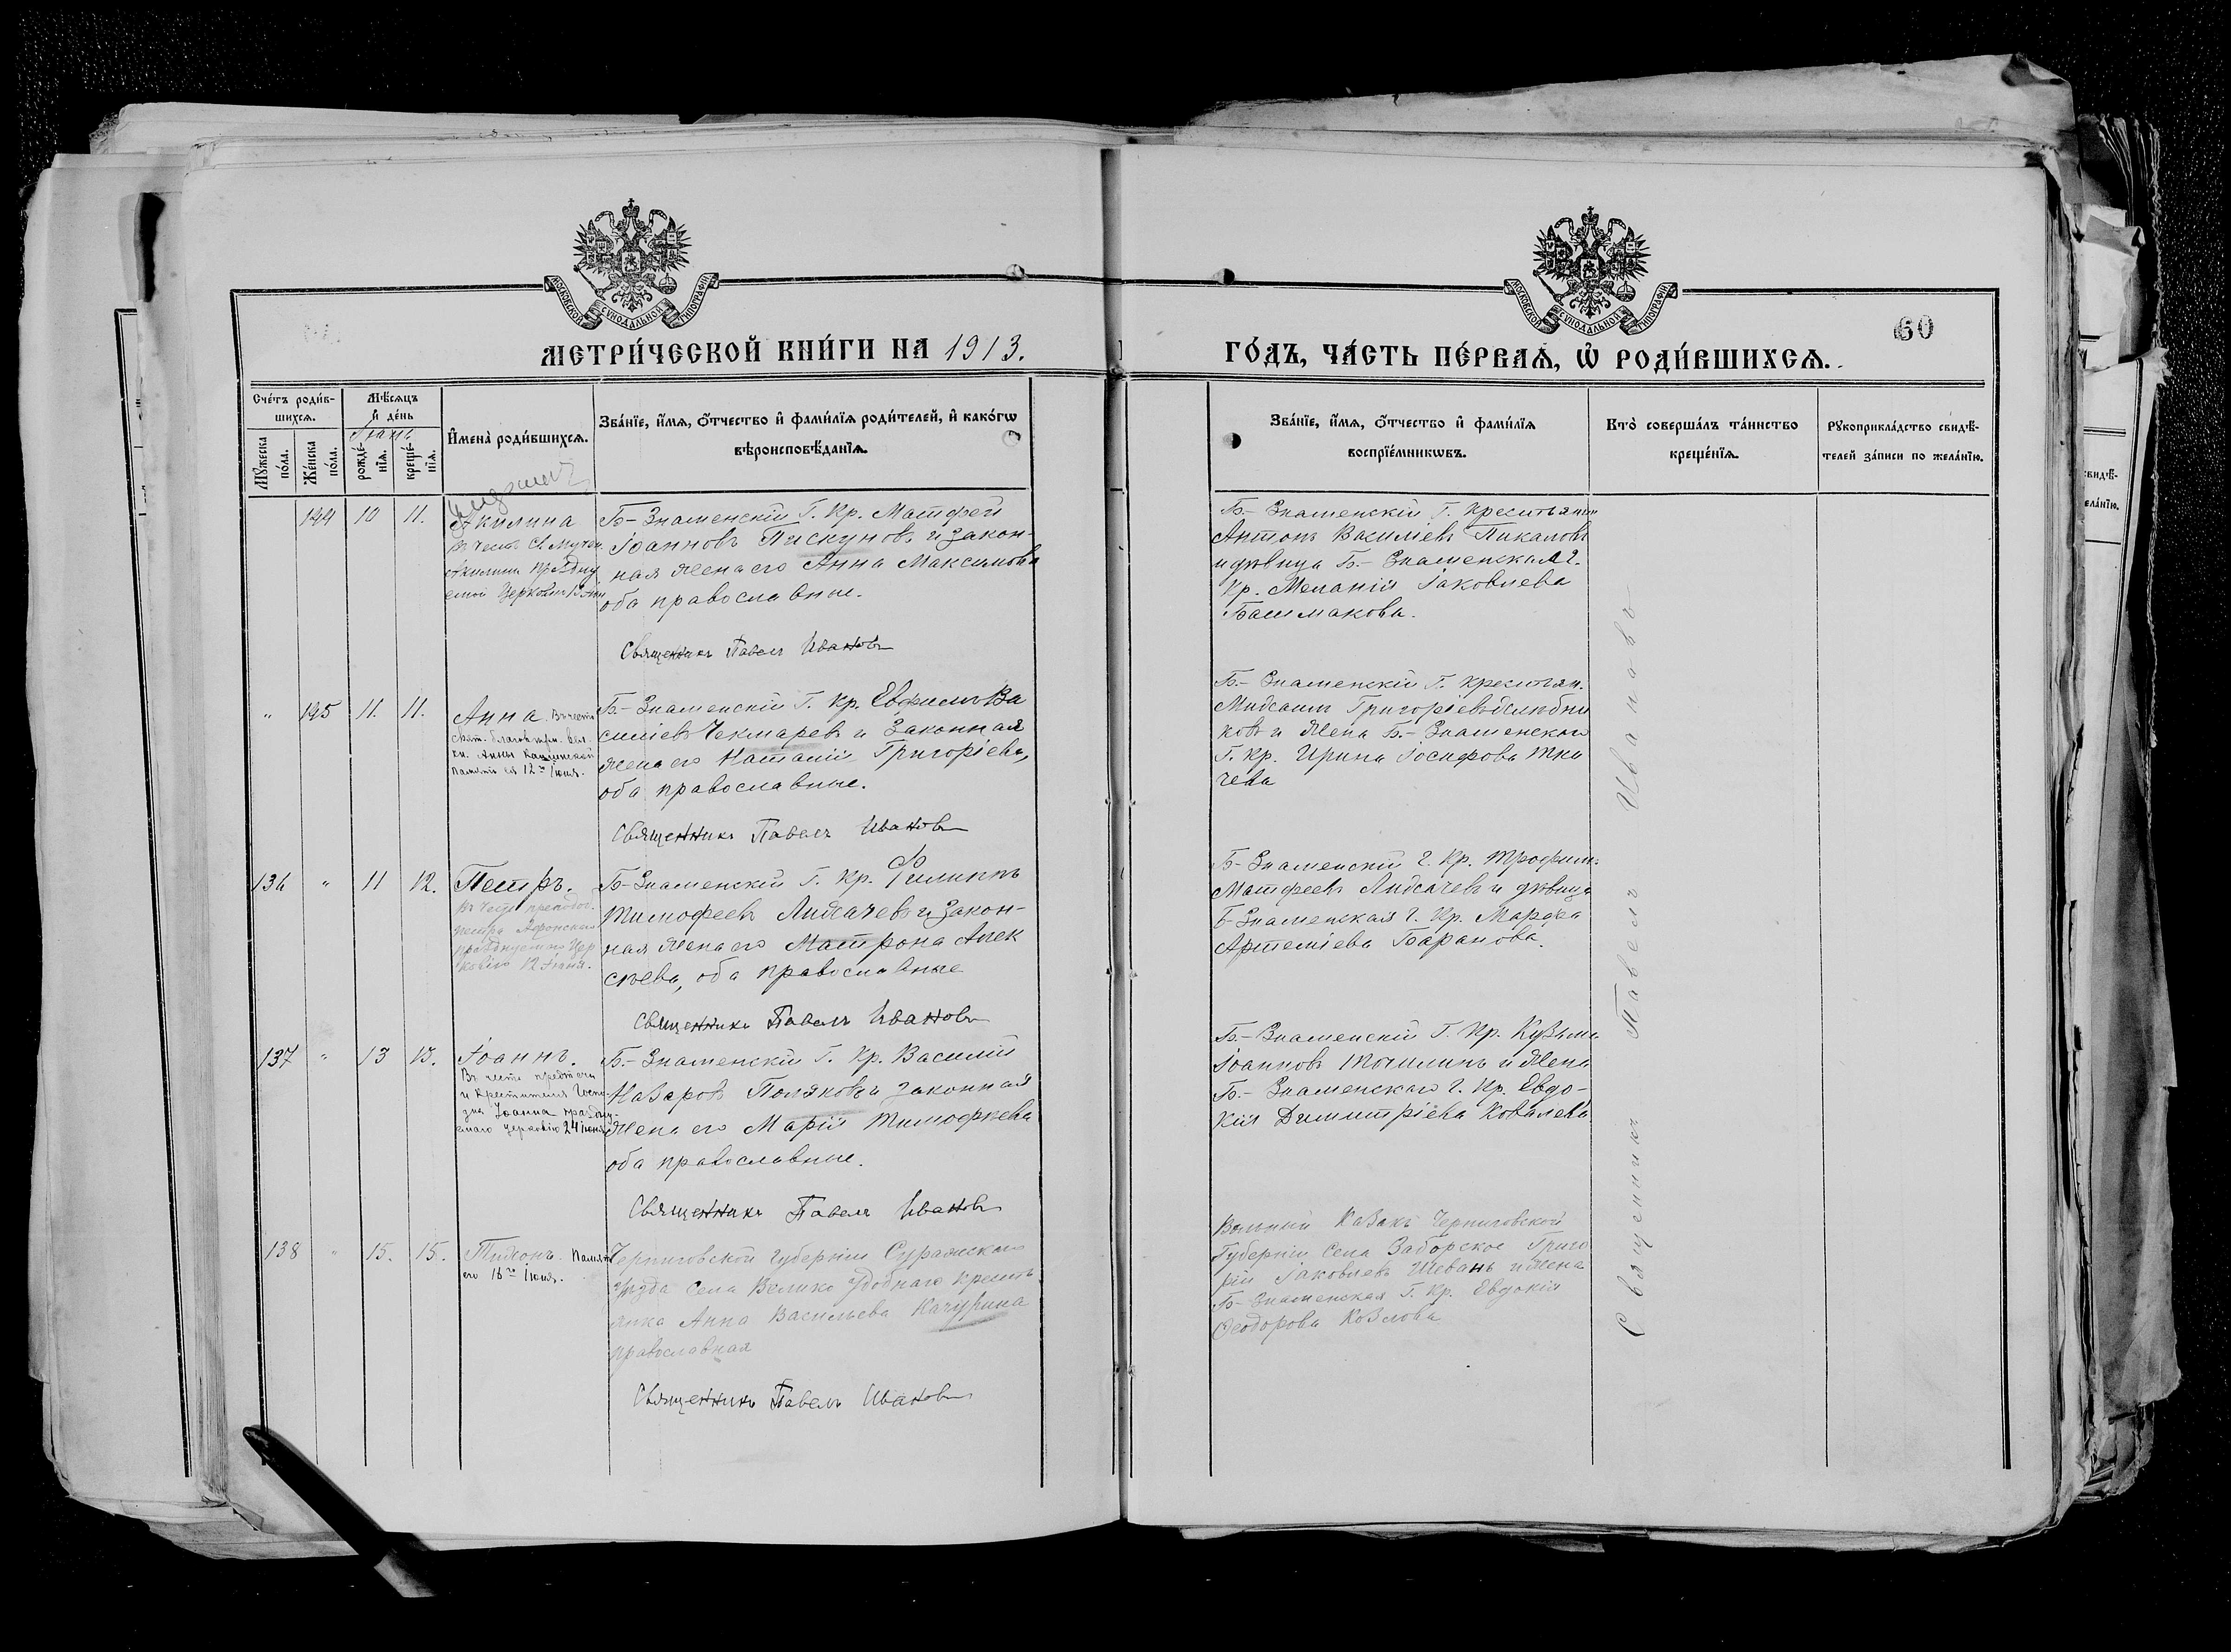 МОСКОВСКОЙ СУНОДАЛЬНОЙ ТИПОГРАФІИ
МОСКОВСКОЙ СУНОДАЛЬНОЙ ТИПОГРАФІИ
60
МЕТРИ́ЧЕСКОЙ КНИ́ГИ НА 1913.
ГО́ДЪ, ЧА́СТЬ ПЕ́РВАѦ, Ѡ҆ РОДИ́ВШИХСѦ.
Сче́тъ роди́в-
шихсѧ.
Мꙋ́жеска
по́ла.
Же́нска
по́ла.
Мѣ́сѧцъ
и҆ де́нь
Іюнь
рожде́-
нїѧ.
креще́-
нїѧ.
И҆мена̀ роди́вшихсѧ.
Зва́нїе, и҆́мѧ, ѻ҆́тчество и҆ фами́лїѧ роди́телей, и҆ како́гѡ
вѣроисповѣ́данїѧ.
Зва́нїе, и҆́мѧ, ѻ҆́тчество и҆ фами́лїѧ
воспрїе́мникѡвъ.
Кто̀ соверша́лъ та́инство
креще́нїѧ.
Рꙋкоприкла́дство свидѣ́-
телей за́писи по жела́нїю.
144 10 11.
Акилина
въ честь Св. Мучен.
Акилины праздну
емой Церковью 13 Іюн
Б-Знаменскій Г. Кр. Матфей
Іоанновъ Пискуновъ и закон-
ная жена его Анна Максимова
оба православные.
Священникъ Павелъ Ивановъ
Б-Знаменскій Г. крестьянин
Антонъ Василіевъ Пикаловъ
и дѣвица Б-Знаменская Г.
Кр. Меланія Іаковлева
Башмакова.
" 145 11. 11.
Анна. Въ честь
свят. благовѣрн. вел.
кн. Анны Кашинской
память ея 12го Іюня.
Б-Знаменскій Г. Кр. Евфимъ Ва
силіевъ Чекмаревъ и законная
жена его Наталія Григоріева,
оба православные.
Священникъ Павелъ Ивановъ
Б-Знаменскій Г. крестьян.
Григоріевъ
ковъ и жена Б-Знаменскаго
Г. Кр. Ирина Іосифова Тка
чева
136 " 11 12.
Петръ.
въ честь преподоб.
Петра Афонскаго
празднуемаго Цер
ковію 12 Іюня.
Б-Знаменскій Г. Кр. Филиппъ
Тимофеевъ Лихачевъ и закон-
ная жена его Матрона Алек
сѣева, оба православные
Священникъ Павелъ Ивановъ
Б-Знаменскій Г. Кр. Трофимъ
Матфеевъ Лихачевъ и дѣвица
Б-Знаменская Г. Кр. Марфа
Артеміева Баранова.
137 " 13 15.
Іоаннъ.
Въ честь предтечи
и Крестителя Госпо-
дня Іоанна праздну-
емаго церковію 24 Іюня
Б-Знаменскій Г. Кр. Василій
Назаровъ Поляковъ и законная
жена его Марія Тимофѣева
оба православные.
Священникъ Павелъ Ивановъ
Б-Знаменскій Г. Кр. Кузьма
Іоанновъ Точилинъ и жена
Б-Знаменскаго Г. Кр. Евдо-
кія Димитріева Ковалева.
138 " 15. 15.
Тихонъ. Память
его 16го Іюня.
Черниговской губерніи Суражскаго
уѣзда Села Велико Удобнаго крестья
янка Анна Васильева Качурина
православная
Священникъ Павелъ Ивановъ
Вольный Казакъ Черниговской
Губерніи Села Заборское Григо
рій Іаковлевъ Шевань и жена
Б-Знаменская Г. Кр. Евдокія
Ѳеодорова Козлова
Священникъ Павелъ Ивановъ